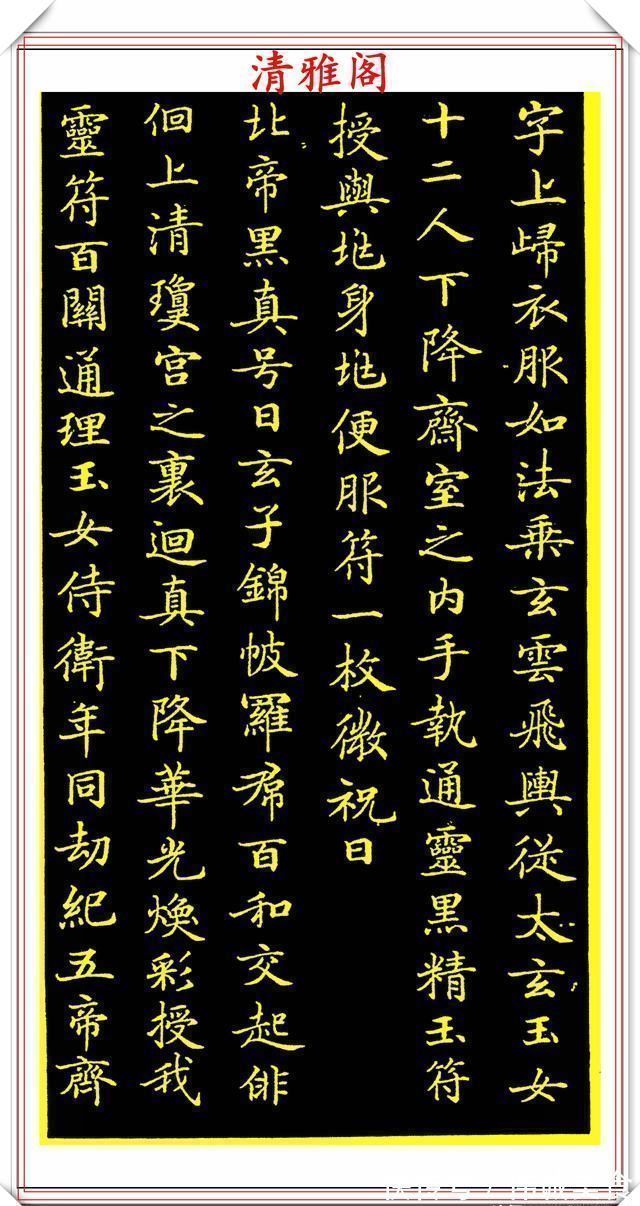 清雅阁
字上歸衣服如法乗玄雲飛輿從太玄玉女
十二人下降齋室之内手執通靈黒精玉符
授與兆身兆便服符一枚微祝曰
北帝黒真号曰玄子錦帔羅帬百和交起俳
佪上清瓊宮之裏迴真下降華光煥彩授我
靈符百關通理玉女侍衛年同劫紀五帝齊